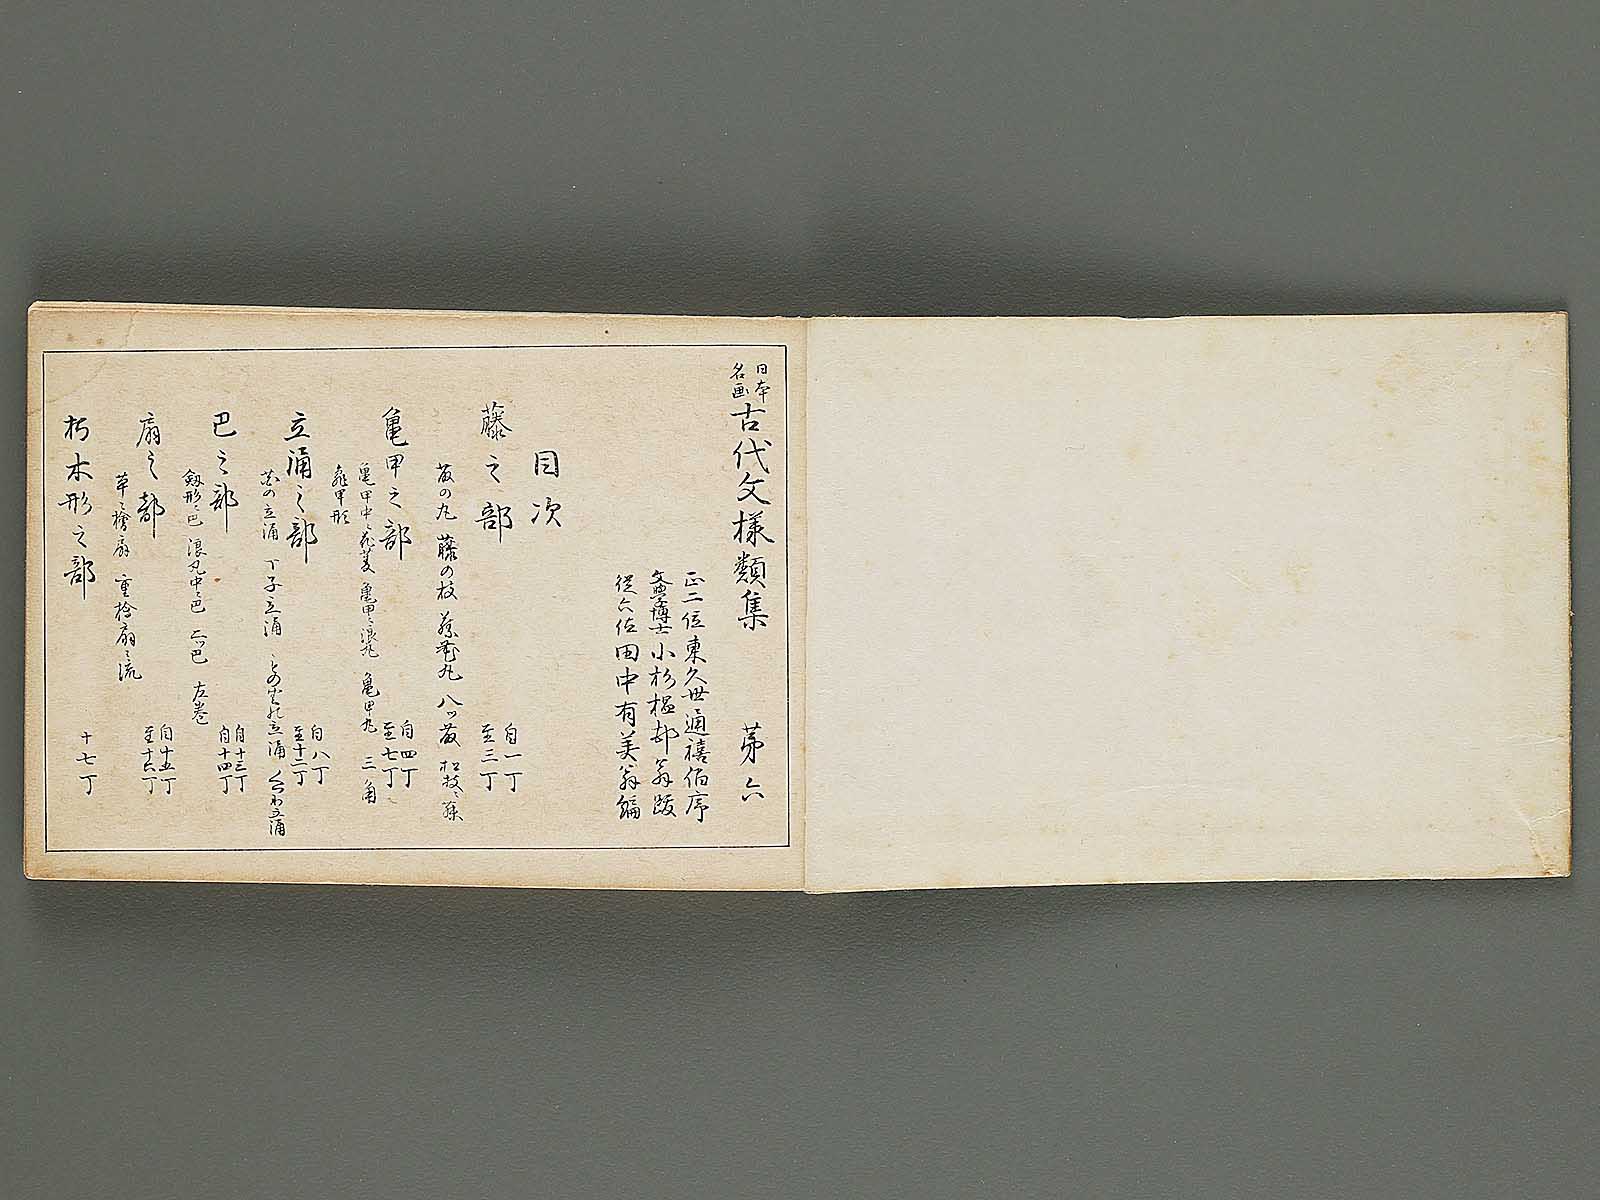 日本名画 古代文様類集 第六
正二位東久世通禧伯序
文学博士小杉榲邨翁跋
従六位田中有美翁編
目次
藤之部 自一丁至三丁
藤の丸 藤の枝 藤花丸 八ツ藤 松枝ニ藤
亀甲之部 自四丁至七丁
亀甲中ニ花菱 亀甲ニ浪丸 亀甲丸 三角
亀甲形
立涌之部 自八丁至十二丁
丁子立涌
巴之部 自十三丁至十四丁
剱形ニ巴 浪丸中ニ巴 三ツ巴 左巻
扇之部 自十五丁至十六丁
草ニ檜扇 重檜扇ニ流
朽木形之部 十七丁